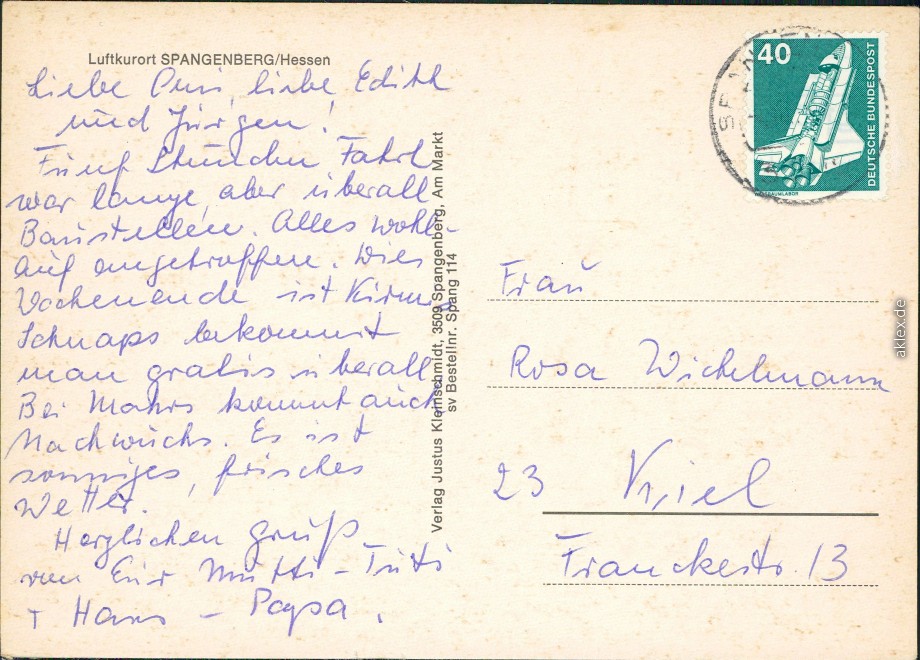 Luftkurort SPANGENBERG/Hessen
Liebe Omi, liebe Edith
und Jürgen!
Fünf Stunden Fahrt
war lange, aber überall
Baustellen. Alles wohl-
auf angetroffen. Dies
Wochenende ist Kirmes
Schnaps bekommt
man gratis überall
Bei kommt auch
Nachwuchs. Es ist
sonniges, frisches
Wetter.
Herzlichen Gruß
von Eur Mutti - Tuti
+ Hans - Papa.
Verlag Justus Kleinschmidt, 3509 Spangenberg, Am Markt
sv Bestellnr. Spang 114
40
DEUTSCHE BUNDESPOST
Frau
Rosa Wichelmann
23 Kiel
Franckestr. 13
aklex.de